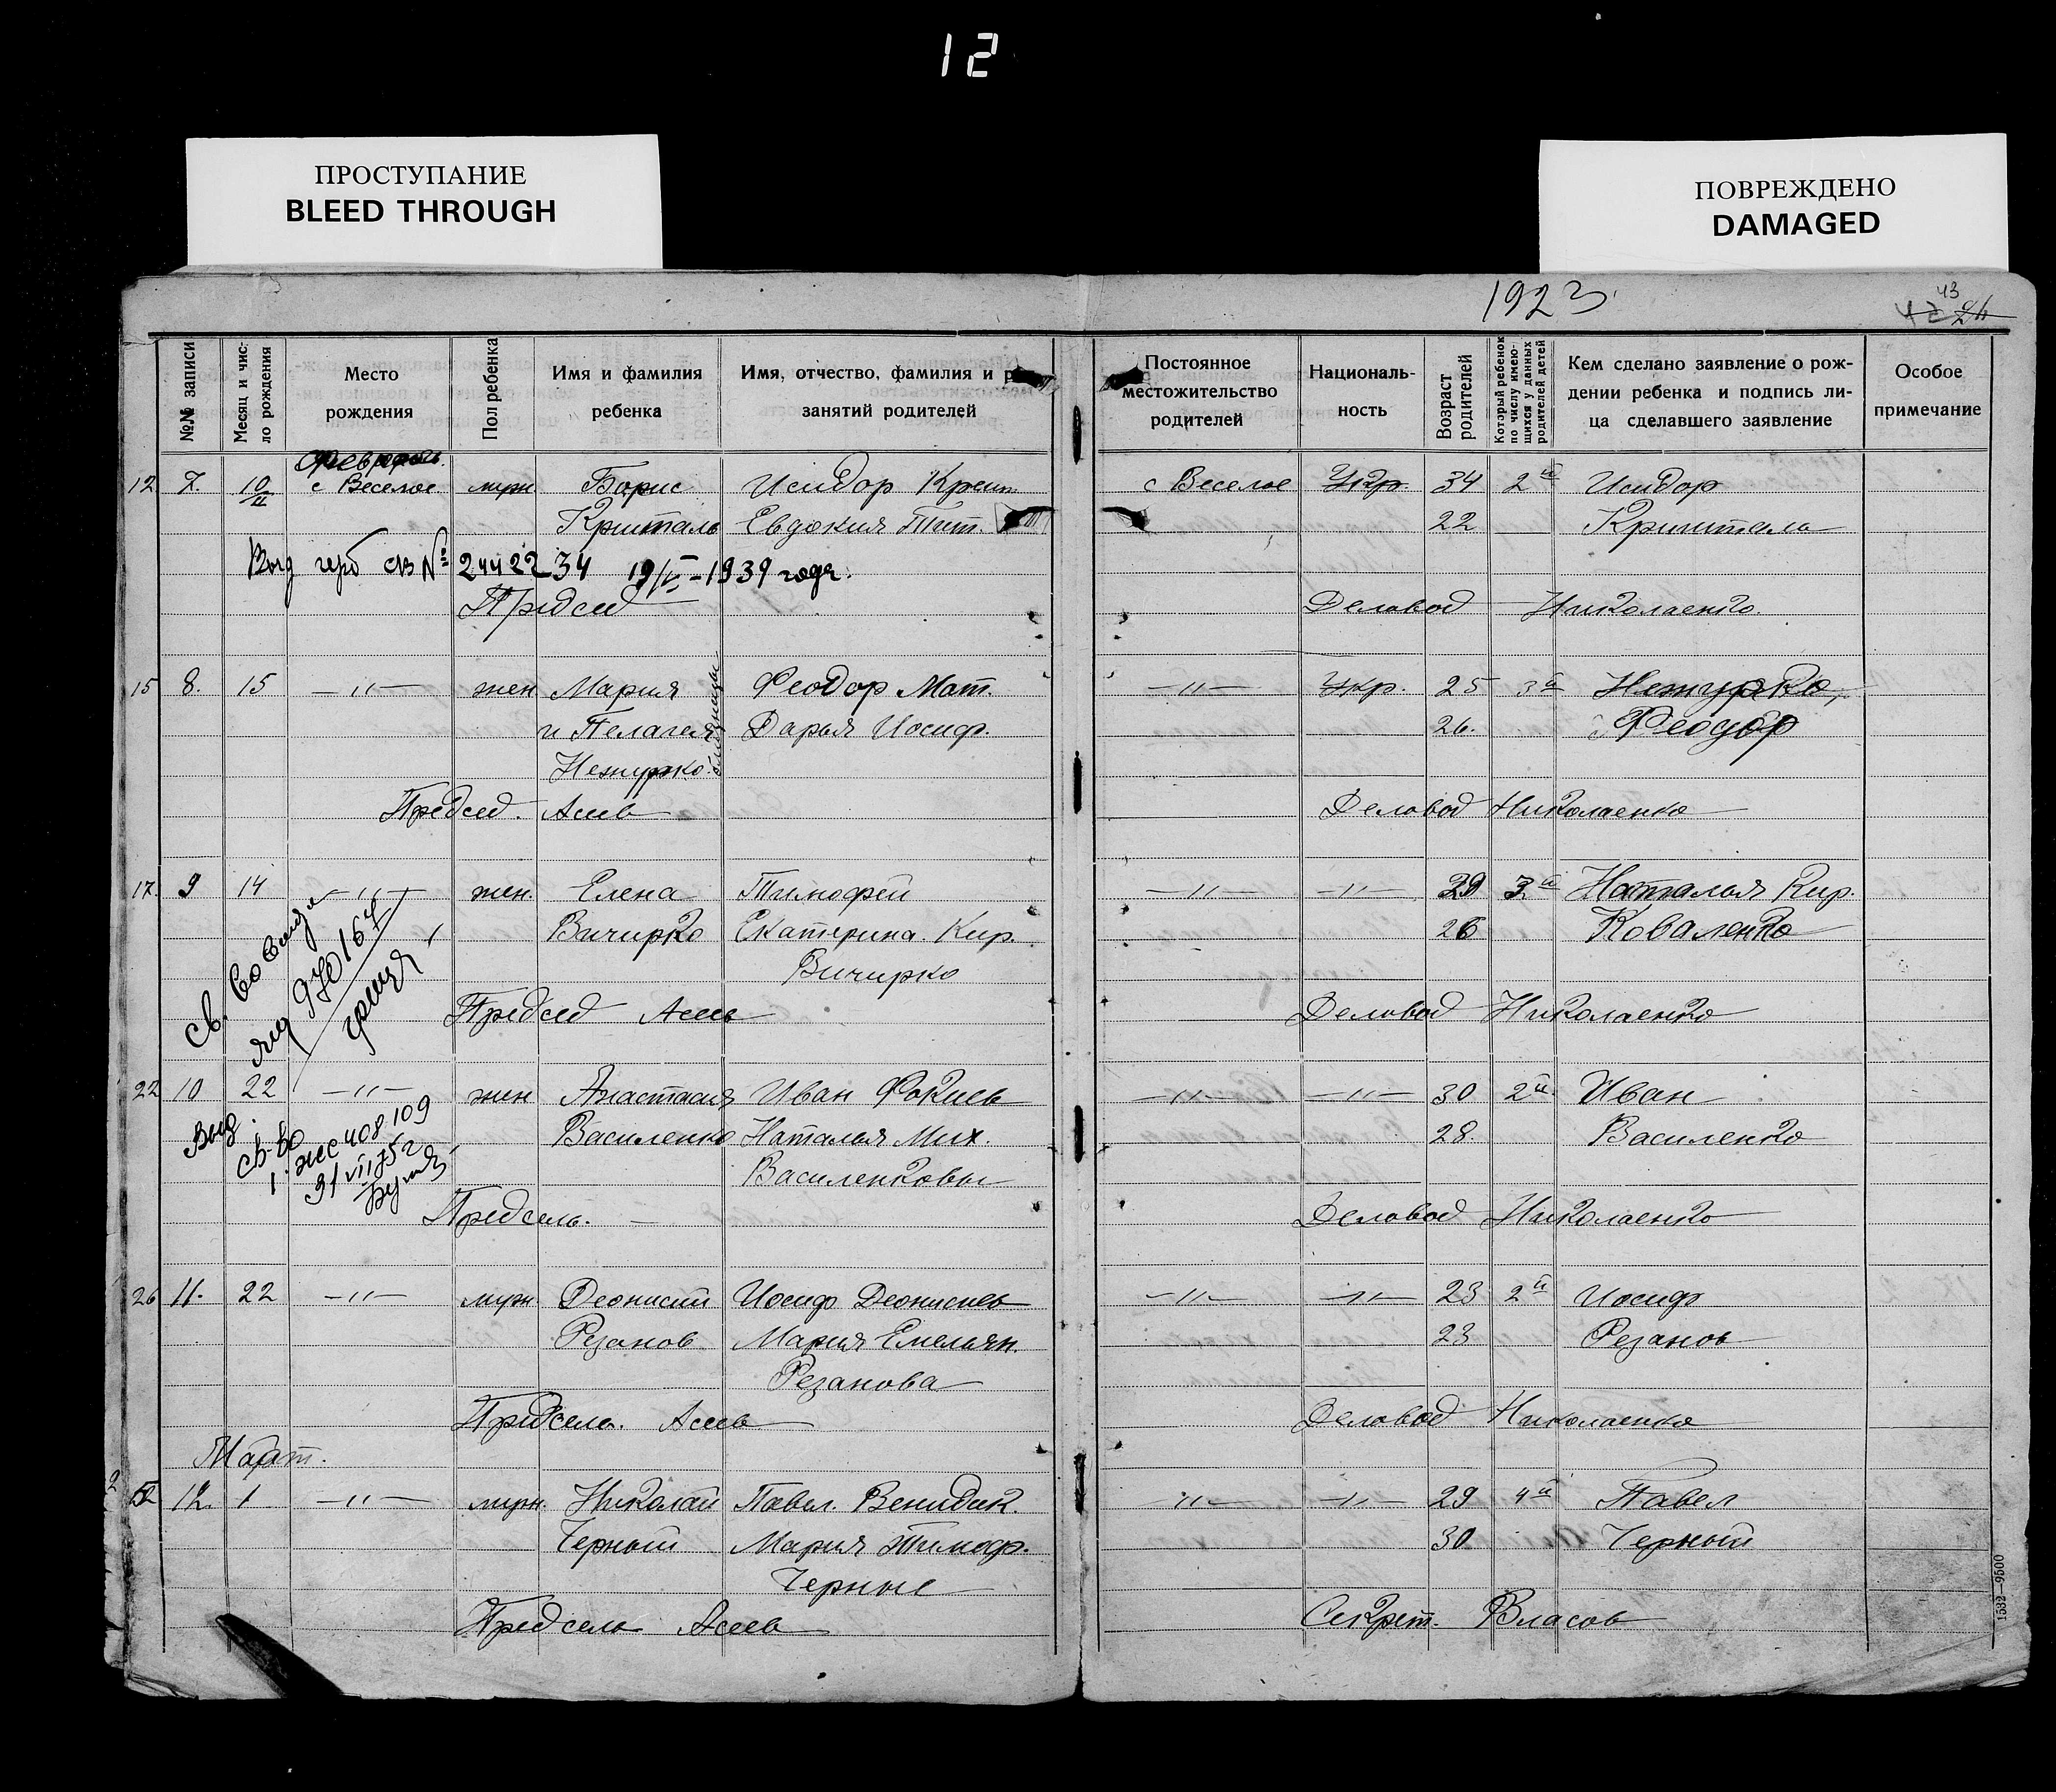 12
ПРОСТУПАНИЕ
BLEED THROUGH
ПОВРЕЖДЕНО
DAMAGED
1923
43
№№ записи
Месяц и чис-
ло рождения
Место
рождения
Пол ребенка
Имя и фамилия
ребенка
Имя, отчество, фамилия и р
занятий родителей
Постоянное
местожительство
родителей
Националь-
ность
Возраст
родителей
Который ребенок
по числу имею-
щихся у данных
родителей детей
Кем сделано заявление о рож-
дении ребенка и подпись ли-
ца сделавшего заявление
Особое
примечание
Февраль.
12 7. 10/II с Веселое муж Борис Исидор с Веселое Укр. 34 2й Исидор
Кришталь Евдокия Тит. 22 Кришталь
Выд герб св № 2442234 19/ -1939 года.
Председ Деловод Николаенко
15 8. 15 —"— жен Мария Феодор Мат. —"— Укр. 25 3й Нежурко,
и Пелагея Дарья Иосиф. 26. Феодор
Нежурко
близнецы
Председ. Асев Деловод Николаенко
17. 9 14 —"— жен. Елена Тимофей —"— —"— 29 3й Наталья Кир.
Вичирко Екатерина Кир. 26 Коваленко
Вичирко
Св.
970167
Председ Асев Деловод Николаенко
22 10 22 —"— жен Анастасия Иван Фокиев —"— —"— 30 2й Иван
Василенко Наталья Мих. 28. Василенко
Василенковы
Выд.
св-во
408109
31 VII 52
Предсель. Деловод Николаенко
26 11. 22 —"— муж Деонисий Иосиф Деонисиев —"— —"— 23 2й Иосиф
Резанов Мария Емельян. 23 Резанов
Резанова
Предсель. Асев Деловод Николаенко
Март.
2 12. 1 —"— муж. Николай Павел Венидик. —"— —"— 29 4й Павел
Черный Мария Тимоф. 30 Черный
Черные
Предсель Асев Секрет. Власов
1532—9500